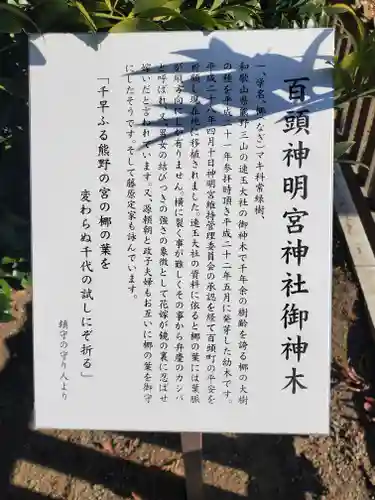 百頭神明宮神社御神木
一、学名、梛(なぎ)マキ科常緑樹、
和歌山県熊野三山の速玉大社の御神木で千年余の樹齢を誇る梛の大樹
の種を平成二十一年参拝時頂き平成二十二年五月に発芽した幼木です。
平成二十八年四月十日神明宮維持管理委員会の承認を経て百頭町の平安を
祈願し現在地に移植されました。速玉大社の資料に依ると梛の葉には葉脈
が縦方向にしか有りません。横に裂く事が難しくその事から弁慶のカンバ
と呼ばれ、又、男女の結びつきの強さの象徴として花嫁が鏡の裏に忍ばせ
嫁いだと言われています。又、源頼朝と政子夫婦もお互いに梛の葉を御守
にしたそうです。そして藤原定家も詠んでいます。
「千早ふる熊野の宮の梛の葉を
変わらぬ千代の試しにぞ折る」
鎮守の守り人より